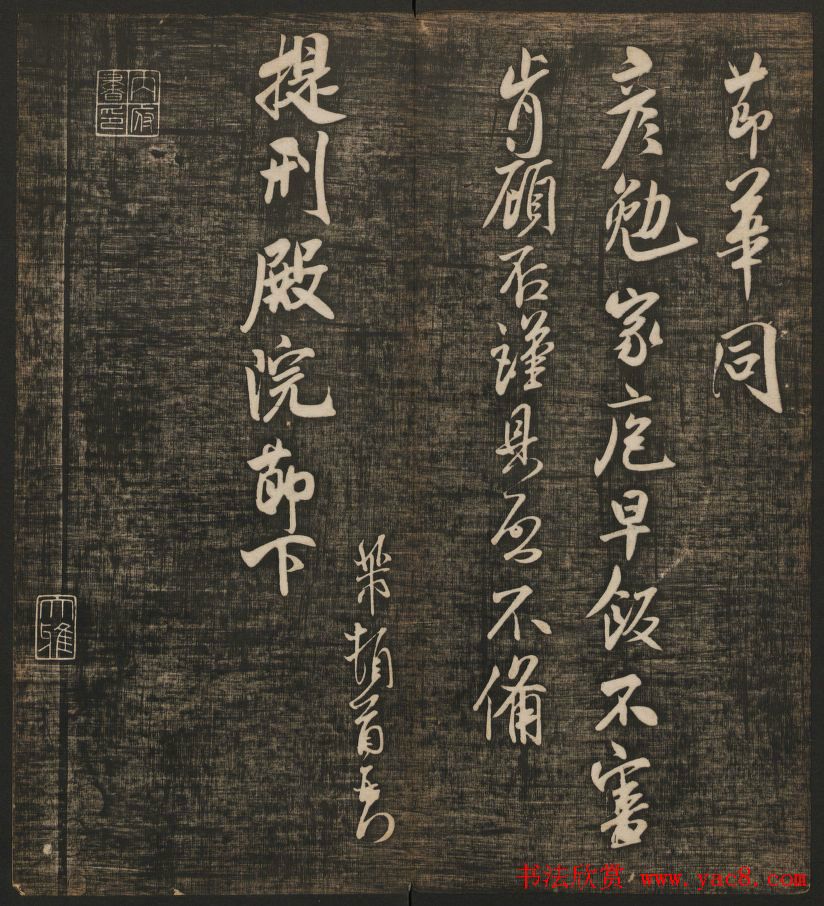 節華同
彦勉家庖早飯不審
肯顧否謹具啓不備
頓首
提刑殿院節下
内府書印
大雅
书法欣赏 www.yac8.com